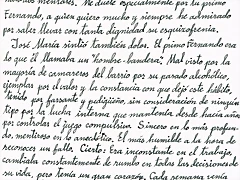 muchos mentores. Me duele especialmente por tu primo
Fernando, a quien quiero mucho y siempre he admirado
por saber llevar con tanta dignidad su esquizofrenia.
José María sintió también dolor. El primo Fernando era
lo que él llamaba un "hombre-bandera". Mal visto por la
mayoría de camareros del barrio por su pasado alcohólico,
ejemplar por el valor y la constancia con que dejó este hábito,
tenido por farsante y pedigüeño, sin consideración de ningún
tipo por la lucha interna que mantenía desde hacía años
por controlar el juego compulsivo. Sincero en lo más profun-
do, mentiroso en lo anecdótico. El más humilde a la hora de
reconocer un fallo. Cierto: Era inconstante en el trabajo,
cambiaba constantemente de rumbo en todas las decisiones de
su vida, pero tenía un gran corazón. Cada semana venía